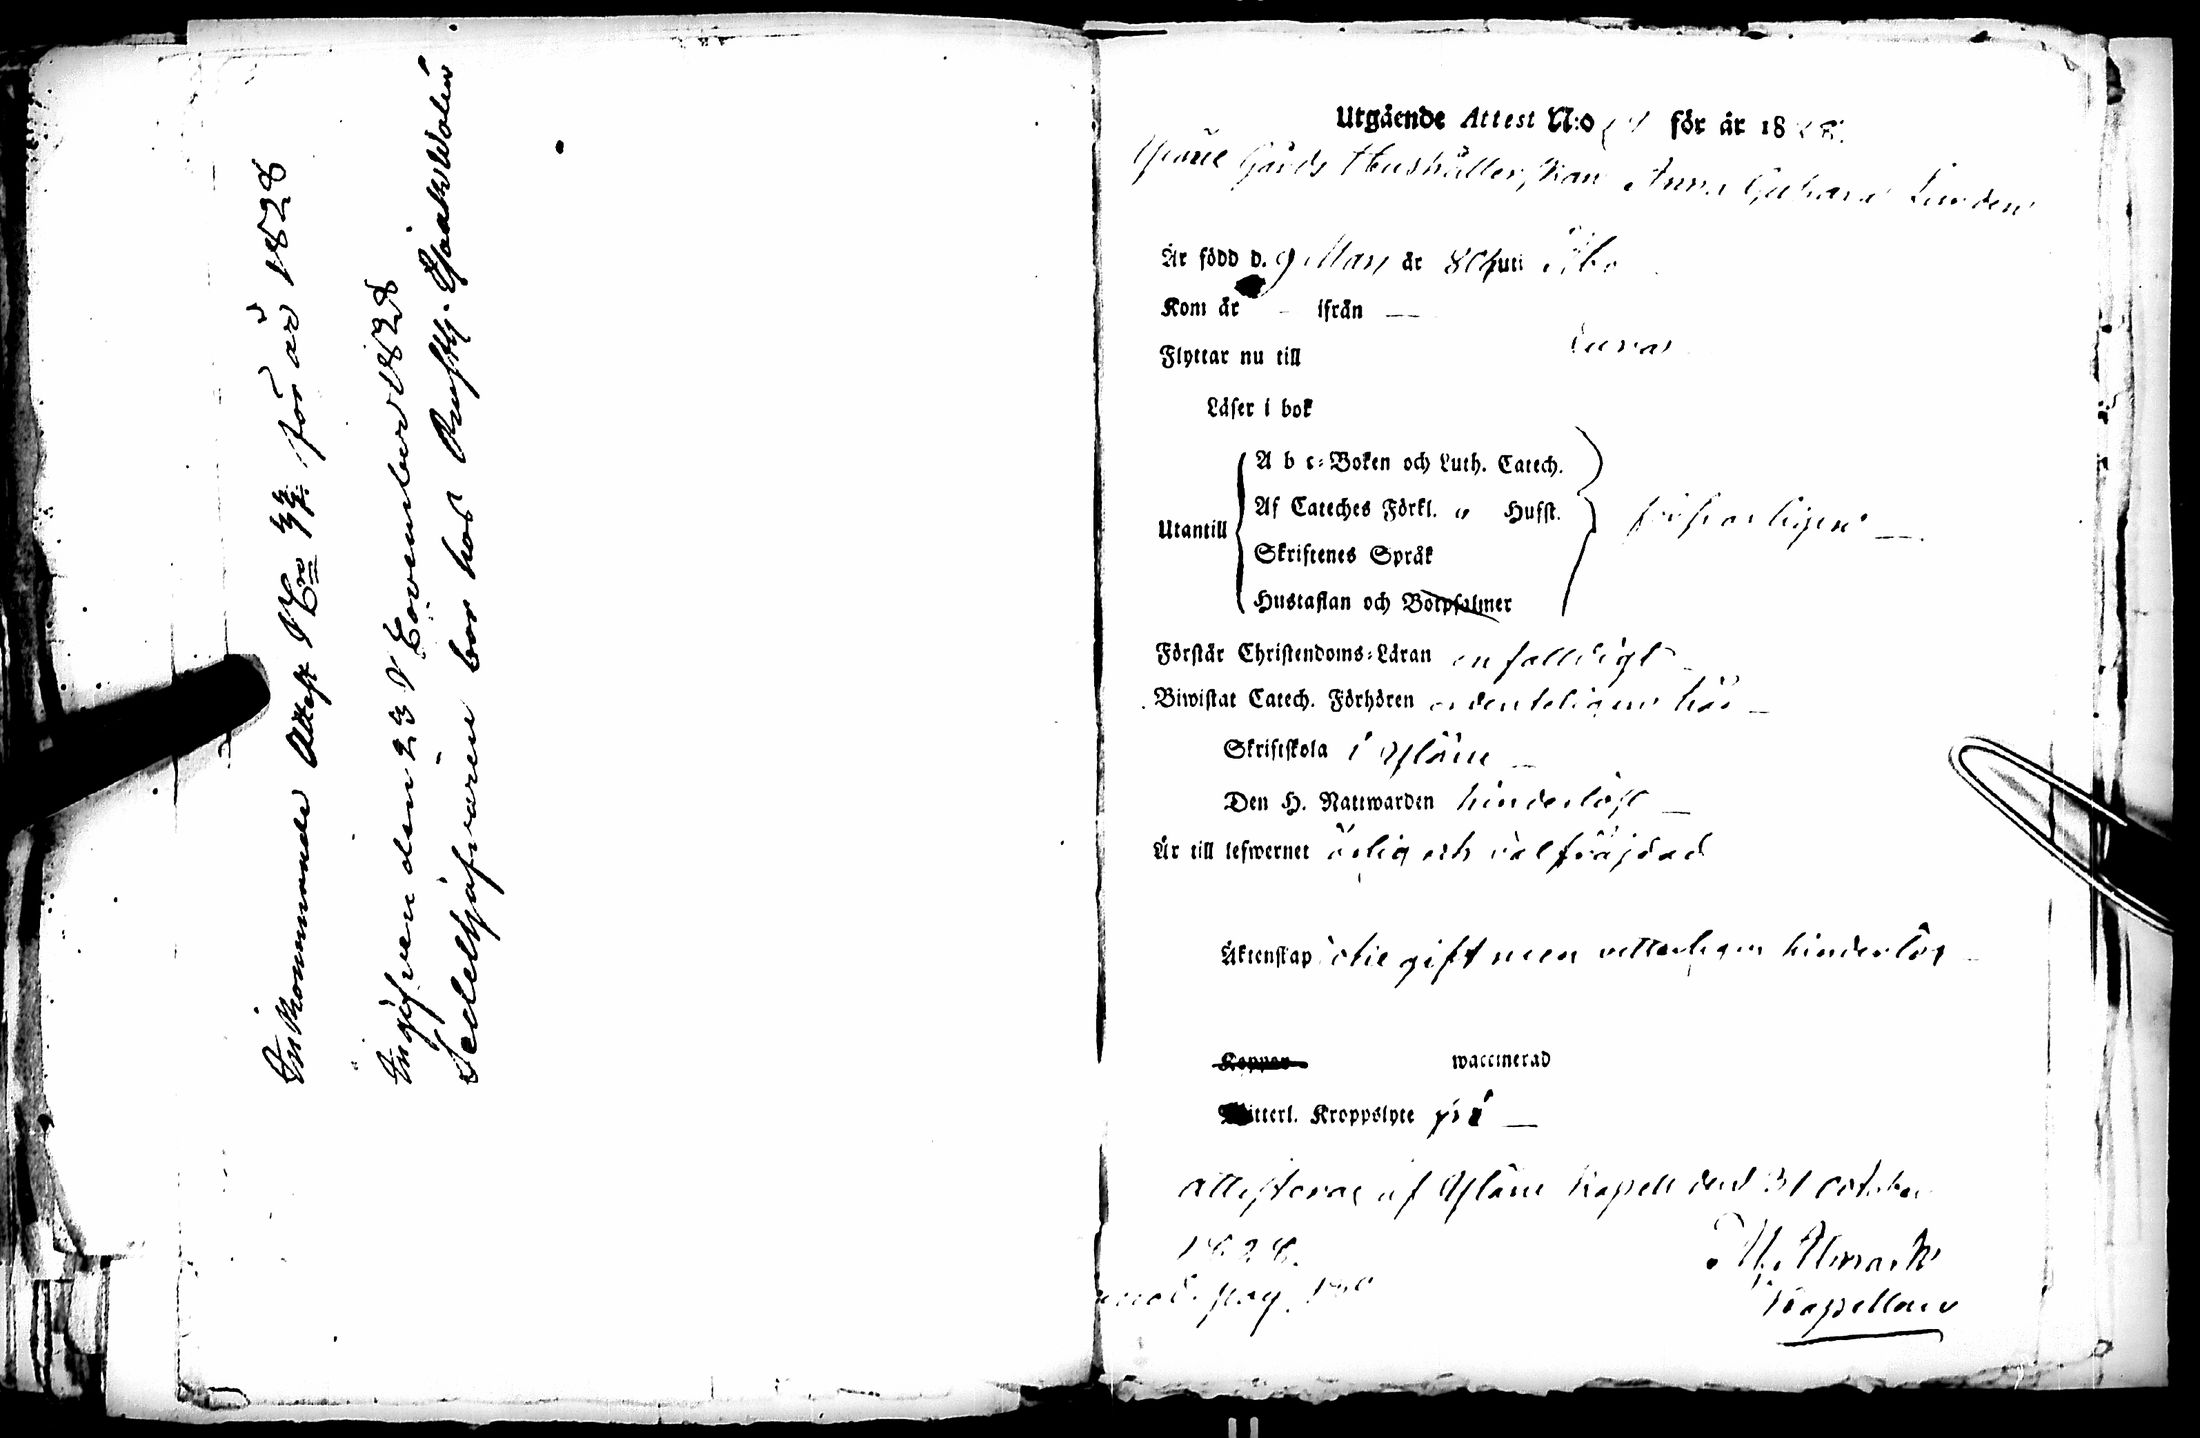 Inkommande Attest N:ro 44. för år 1828
Ingifven den 23 November 1828
Sedelhafvaren bor hos
Utgående Attest N:o för år 1828.
Gårds Hushållerskan Anna Lindén
Är född d. 9 Mars år 804 uti Åbo
Kom år - ifrån —
Flyttar nu till
Läser i bok
Utantill
A b c-Boken och Luth. Catech.
Af Cateches Förkl. " Husst.
Skriftenes Språk
Hustaflan och Botpsalmer
försvarligen —
Förstår Christendoms-Läran enfalldigt —
Biwistat Catech. Förhören ordenteligen här —
Skriftskola i Yläne —
Den H. Nattwarden hinderlöst —
Är till lefwernet ärlig och välfräjdad
Äktenskap icke gift men vetterligen hinderlös —
Koppor waccinerad
Witterl. Kroppslyte fri —
Attesteras af Yläne Kapell den 31 October
1828.
pag. 180
Kapellan